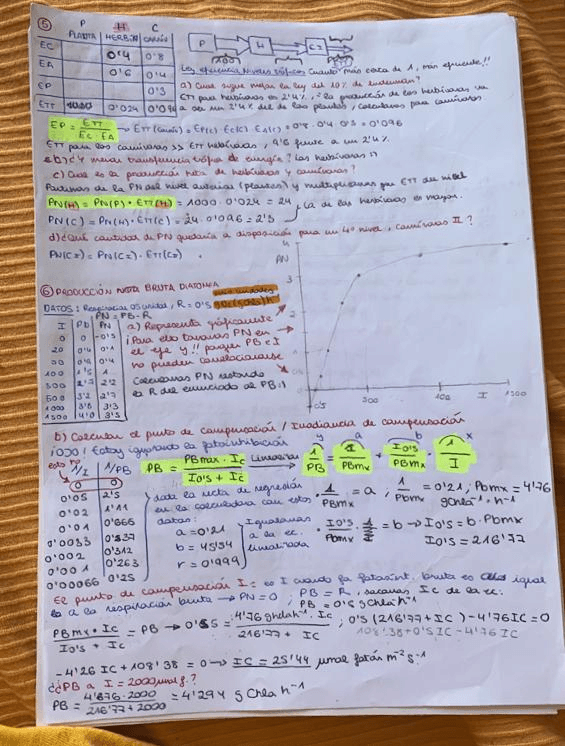 ⑤
P H C
PLANTA HERBÍV CARNÍV
EC 0'4 0'8
EA 0'6 0'4
EP 0'3
ETT 0'024 0'096
P H C2
Ley eficiencia niveles tróficos cuanto más cerca de 1, más eficiente!!
a) Cual sigue mejor la ley del 10% de Lindeman?
ETT para herbívoros es 2'4%, la producción de los herbívoros va
a ser un 2'4% del de las plantas, calculamos para carnívoros.
EP = ETT / EC · EA → ETT (carnív) = EP(C) · EC(C) · EA(C) = 0'8 · 0'4 · 0'3 = 0'096
ETT para los carnívoros >> ETT herbívoros, 9'6 frente a un 2'4%
b) ¿Y menor transferencia trófica de energía? Los herbívoros
c) Cual es la producción neta de herbívoros y carnívoros?
Partimos de la PN del nivel anterior (plantas) y multiplicamos por ETT del nivel
PN(H) = PN(P) · ETT(H) = 1000 · 0'024 = 24
La de los herbívoros es mayor.
PN(C) = PN(H) · ETT(C) = 24 · 0'096 = 2'3
d) ¿Qué cantidad de PN quedaría a disposición para un 4º nivel, carnívoros II?
PN(C2) = PN(C2) · ETT(C2)
⑥ PRODUCCIÓN NETA BRUTA DIATOMEA
DATOS: Respiración oscuridad, R = 0'5
PN = PB - R
I PB PN
0 0 -0'5
20 0'4
50 0'9 0'4
100 1'5 1
300 2'7 2'2
500 3'2 2'7
1000 3'8 3'3
1500 4'0 3'5
a) Representa gráficamente
¡Para ello tomamos PN en
el eje y!! porque PB e I
no pueden correlacionarse
Calculamos PN restando
la R del enunciado al PB!!
PN
4
3
-0'5
500 1000 I 1500
b) Calcular el punto de compensación / Irradiancia de compensación
¡OJO! Estoy ignorando la fotoinhibición
esto no
1/I 1/PB
0 0
0'05 2'5
0'02 1'11
0'01 0'665
0'0033
0'002 0'312
0'001 0'263
0'00066 0'25
PB = PBmax · Ic / I0's + Ic
Linealizar
y a b x
1/PB = 1/PBmx + I0's/PBmx · 1/I
dada la recta de regresión
en la calculadora con estos
datos:
a = 0'21
b = 45'54
r = 0'999
Igualamos
a la ec.
linealizada
1/PBmx = a ; 1/PBmx = 0'21 ; PBmx = 4'76
gChla⁻¹ · h⁻¹
I0's/PBmx = b → I0's = b · PBmax
I0's = 216'77
El punto de compensación Ic es I cuando la fotosínt. bruta es igual
a la respiración bruta → PN = 0 ; PB = R, sacamos Ic de la ec.
PB = 0'5 gChla h⁻¹
PBmx · Ic / I0's + Ic = PB → 0'5 = 4'76 gChla h⁻¹ · Ic / 216'77 + Ic ; 0'5 (216'77 + IC) - 4'76 IC = 0
108'38 + 0'5 IC - 4'76 IC
-4'26 IC + 108'38 = 0 → IC = 25'44 μmol fotón m⁻² s⁻¹
¿¿PB a I = 2000 μmol f.?
PB = 4'76 · 2000 / 216'77 + 2000 = 4'294 gChla h⁻¹